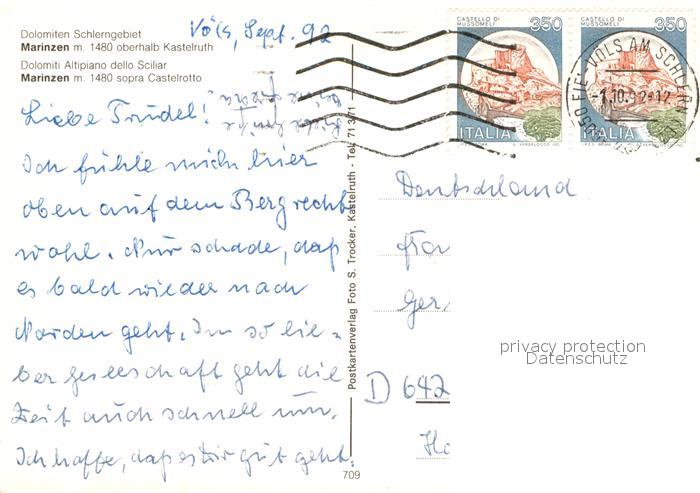 Dolomiten Schlerngebiet
Marinzen m. 1480 oberhalb Kastelruth
Dolomiti Altipiano dello Sciliar
Marinzen m. 1480 sopra Castelrotto
Völs, Sept. 92
Liebe Trudel!
Ich fühle mich hier
oben auf dem Berg recht
wohl. Nur schade, daß
es bald wieder nach
Norden geht. In so lie-
ber Gesellschaft geht die
Zeit auch schnell um.
Ich hoffe, daß es Dir gut geht.
Postkartenverlag Foto S. Trocker, Kastelruth - Tel. 71371
709
CASTELLO DI MUSSOMELI 350
ITALIA
CASTELLO DI MUSSOMELI 350
ITALIA
VÖLS AM SCHLERN
-1.10.92-12
Deutschland
Frau
Ger
D 642
privacy protection
Datenschutz